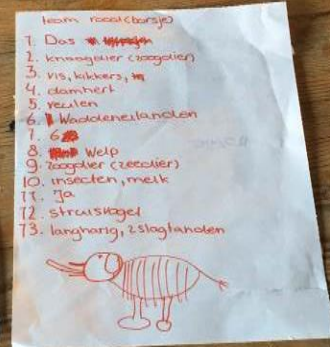 team roodborsje
1. Das
2. knaagdier (zoogdier)
3. vis, kikkers,
4. damhert
5. veulen
6. Waddeneilanden
7. 6
8. Welp
9. zoogdier (zeedier)
10. insecten, melk
11. Ja
12. struisvogel
13. langharig, 2 slagtanden